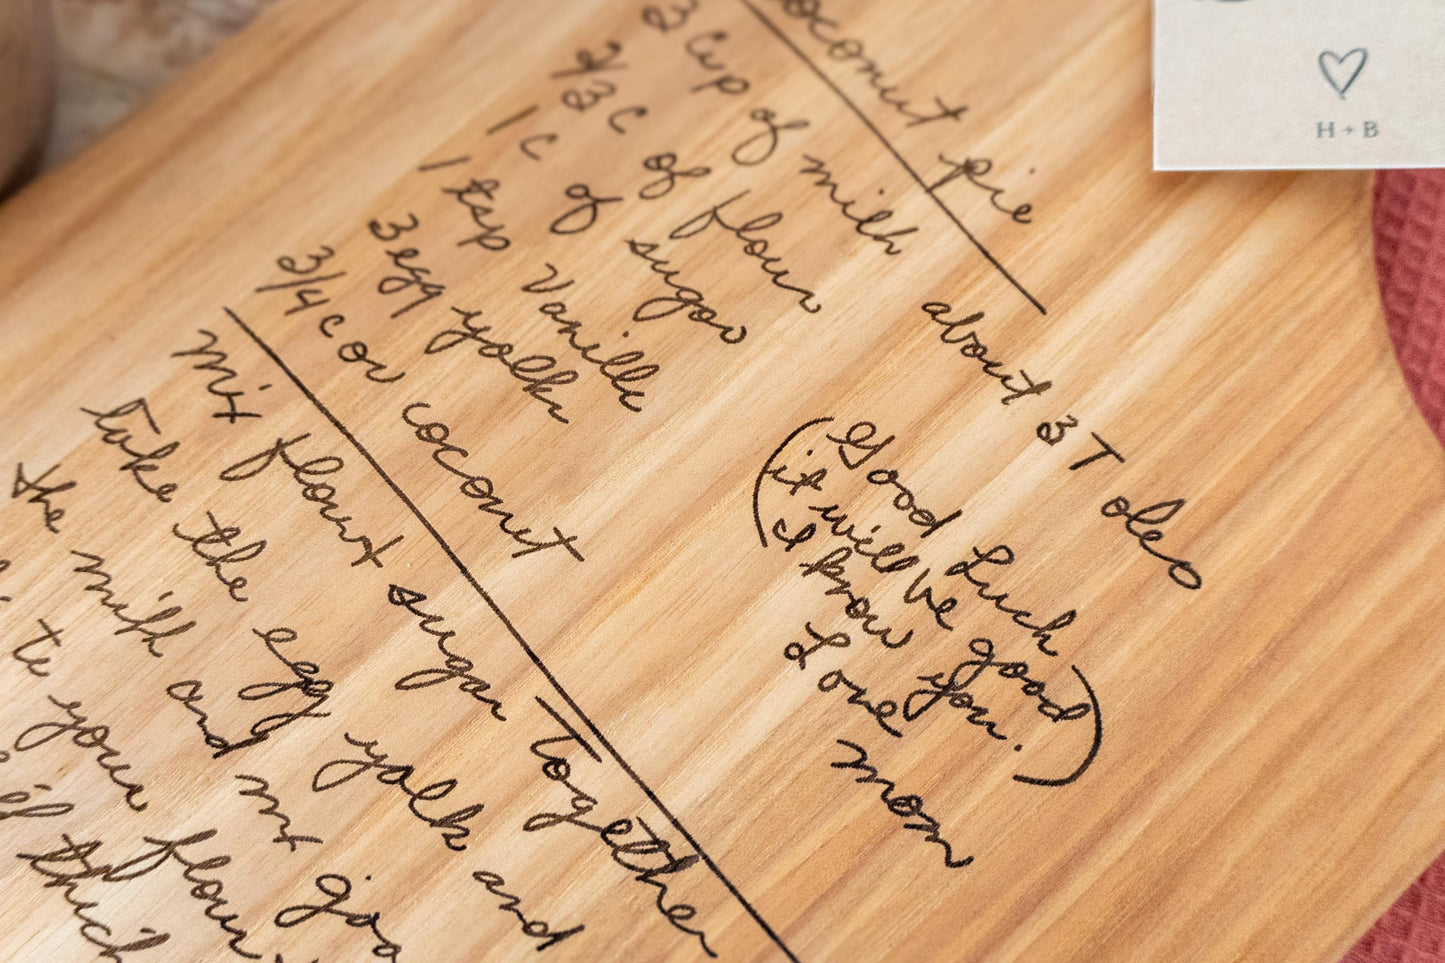 coconut pie
3 Cup of milk
2/3 C of flour
1 C of sugar
1 tsp Vanille
3 egg yolks
3/4 c or coconut
about 3 T oleo
(Good Luck
it will be good
I know you.)
Love
mom
mix flour + sugar together
take the egg yolk and
the milk and mx goo
to your flour +
til thick
H + B